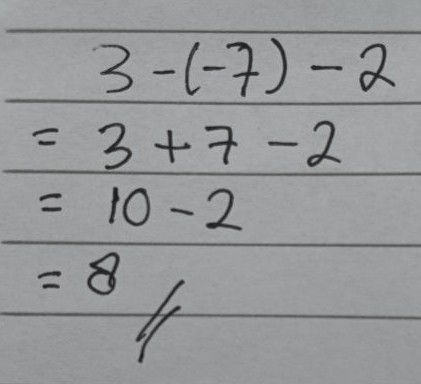 3 - (-7) - 2
= 3 + 7 - 2
= 10 - 2
= 8 //